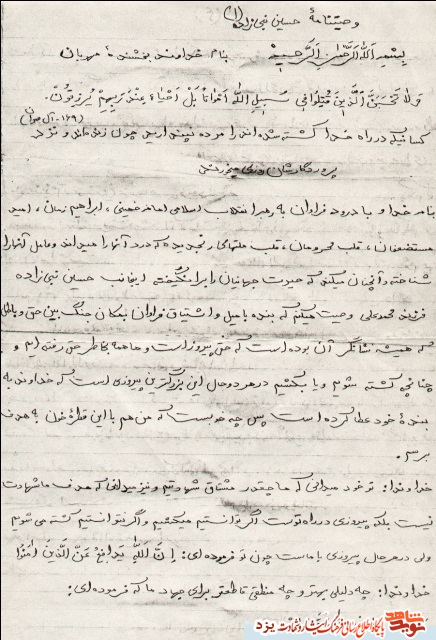 وصیتنامهٔ حسین نبی زاده (۱)
بِسْمِ اللهِ الرَّحْمٰنِ الرَّحِیمْ بنام خداوند بخشندهٔ مهربان
وَلا تَحْسَبَنَّ الَّذینَ قُتِلوُا فی سَبیلِ اللهِ اَمْواتاً بَلْ اَحْیاءٌ عِنْدَ رَبِّهِمْ یُرْزَقُونَ.
(۱۶۹- آل عمران)
کسانیکه در راه خدا کشته شده اند را مرده نپندارید چون زنده اند و نزد
پروردگارشان روزی میخورند
بنام خدا و با درود فراوان به رهبر انقلاب اسلامی امام خمینی، ابراهیم زمان، امید
مستضعفان، قلب محرومان، قلب ملتهای رنجدیده که درد آنها را میداند و عامل آنها را
شناخته و آنچنان میکند که حیرت جهانیان را برانگیخته اینجانب حسین نبی زاده
فرزند محمدعلی وصیت میکنم که بنده با میل و اشتیاق فراوان بمکان جنگ بین حق و باطل
که همیشه نشانگر آن بوده است که حق پیروز است و ما همه بخاطر حق رفته ایم و
چنانچه کشته شویم و یا بکشیم در هر دو حال این بزرگترین پیروزی است که خداوند به
بندهٔ خود عطا کرده است پس چه خوبست که من هم با این قطرهٔ خون به هدف
برسم.
خداوندا: تو خود میدانی که ما چقدر مشتاق شهادتیم و نیز میدانی که هدف ما شهادت
نیست بلکه پیروزی در راه توست اگر توانستیم میکشیم و اگر نتوانستیم کشته می شویم
ولی در هر حال پیروزی با ماست چون تو فرموده ای: اِنَّ اللهَ یُدافِعُ عَنِ الَّذینَ آمَنُوا
خداوندا: چه دلیلی بهتر و چه منطقی قاطعتر برای جهاد ما که فرموده ای:
پایگاه اطلاع رسانی فرهنگ ایثار و شهادت یزد
نوید شاهد